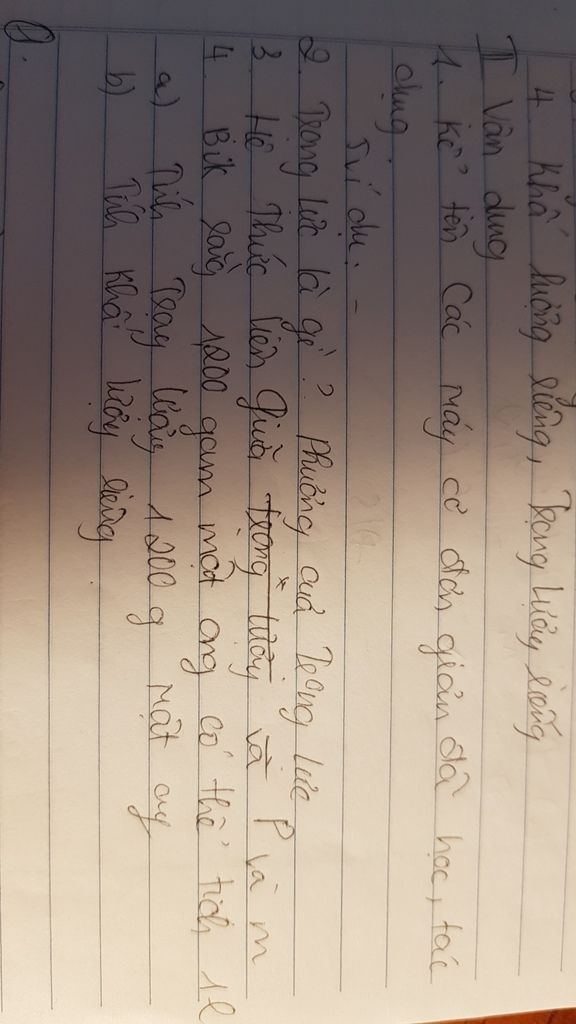 4. Khối lượng riêng, Trọng lượng riêng
II Vận dụng
1. Kể tên các máy cơ đơn giản đã học, tác
dụng
Ví dụ: -
2. Trọng lực là gì? Phương của Trọng lực
3 Hệ thức liên giữa Trọng lượng và P và m
4. Biết rằng 1200 gam mật ong có thể tích 1l
a) Tính Trọng lượng 1200g mật ong
b) Tính khối lượng riêng